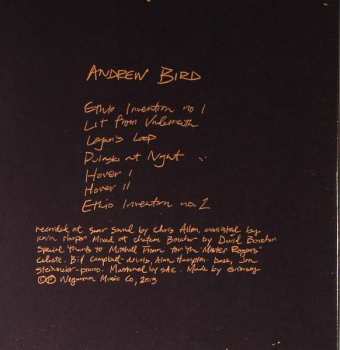 ANDREW BIRD
Ethio Invention no 1
Lit from Underneath
Logan's Loop
Pulaski at Night
Hover I
Hover II
Ethio Invention no. 2
recorded at Sear Sound by Chris Allen, assisted by
Mixed at Chateau Boucher by David Boucher
Special thanks to Mitchell Froom for the Mister Rogers'
celeste. Bill Campbell-drums, Alan Hampton-bass, Jon
piano. Mastered by SAE. Made by Germany
©℗ Wegawam Music Co, 2013